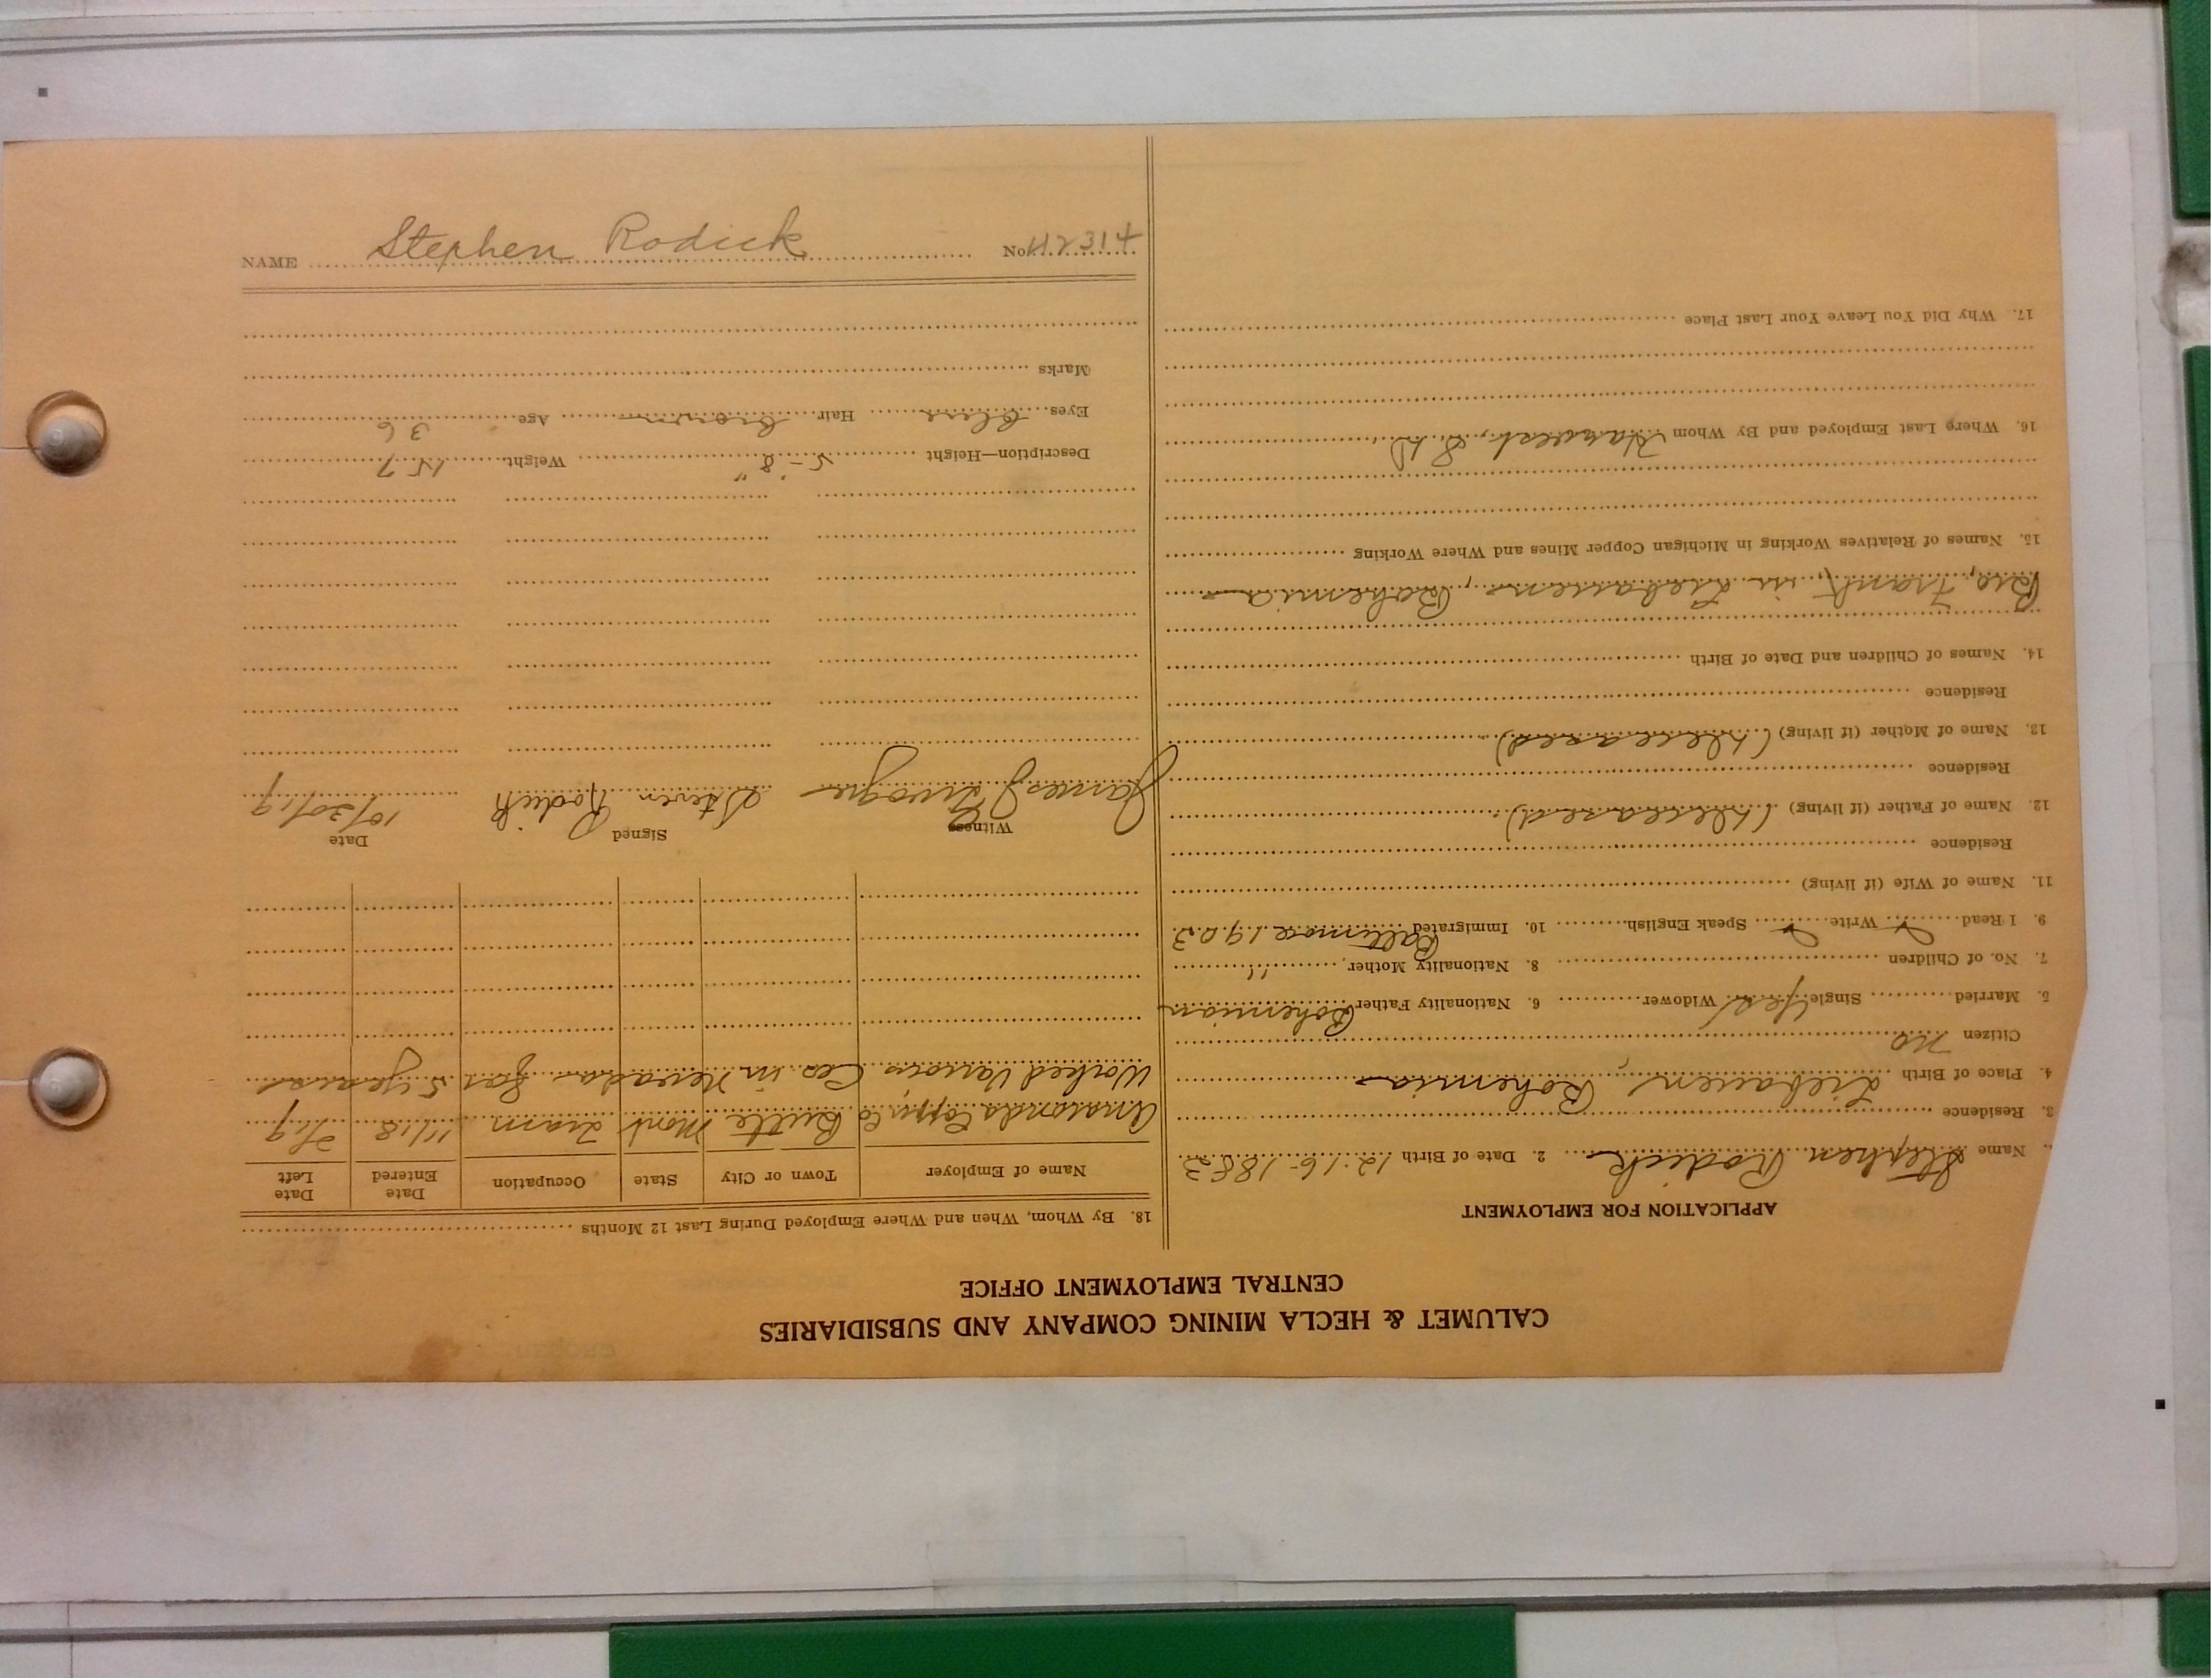 CALUMET & HECLA MINING COMPANY AND SUBSIDIARIES
CENTRAL EMPLOYMENT OFFICE
APPLICATION FOR EMPLOYMENT
Name Stephen Rodick 2. Date of Birth 12-16-1883
3. Residence
4. Place of Birth Liebauen, Bohemia
Citizen no
5. Married Single yes Widower 6. Nationality Father Bohemian
7. No. of Children 8. Nationality Mother, "
9. I Read Write Speak English 10. Immigrated Baltimore 1903
11. Name of Wife (if living)
Residence
12. Name of Father (if living) (deceased)
Residence
13. Name of Mother (if living) (deceased)
Residence
14. Names of Children and Date of Birth
Bro, Frank, in Liebauen, Bohemia
15. Names of Relatives Working in Michigan Copper Mines and Where Working
16. Where Last Employed and By Whom
17. Why Did You Leave Your Last Place
18. By Whom, When and Where Employed During Last 12 Months
Name of Employer Town or City State Occupation Date Entered Date Left
Anaconda Copp. Co Butte Mont Tram 11/18 2/19
Worked Various Cos in Nevada for 5 years
Witness Signed Date
James J. Steven Rodick 10/30/19
Description—Height 5-8" Weight 157
Eyes blue Hair brown Age 36
Marks
NAME Stephen Rodick No. 42314